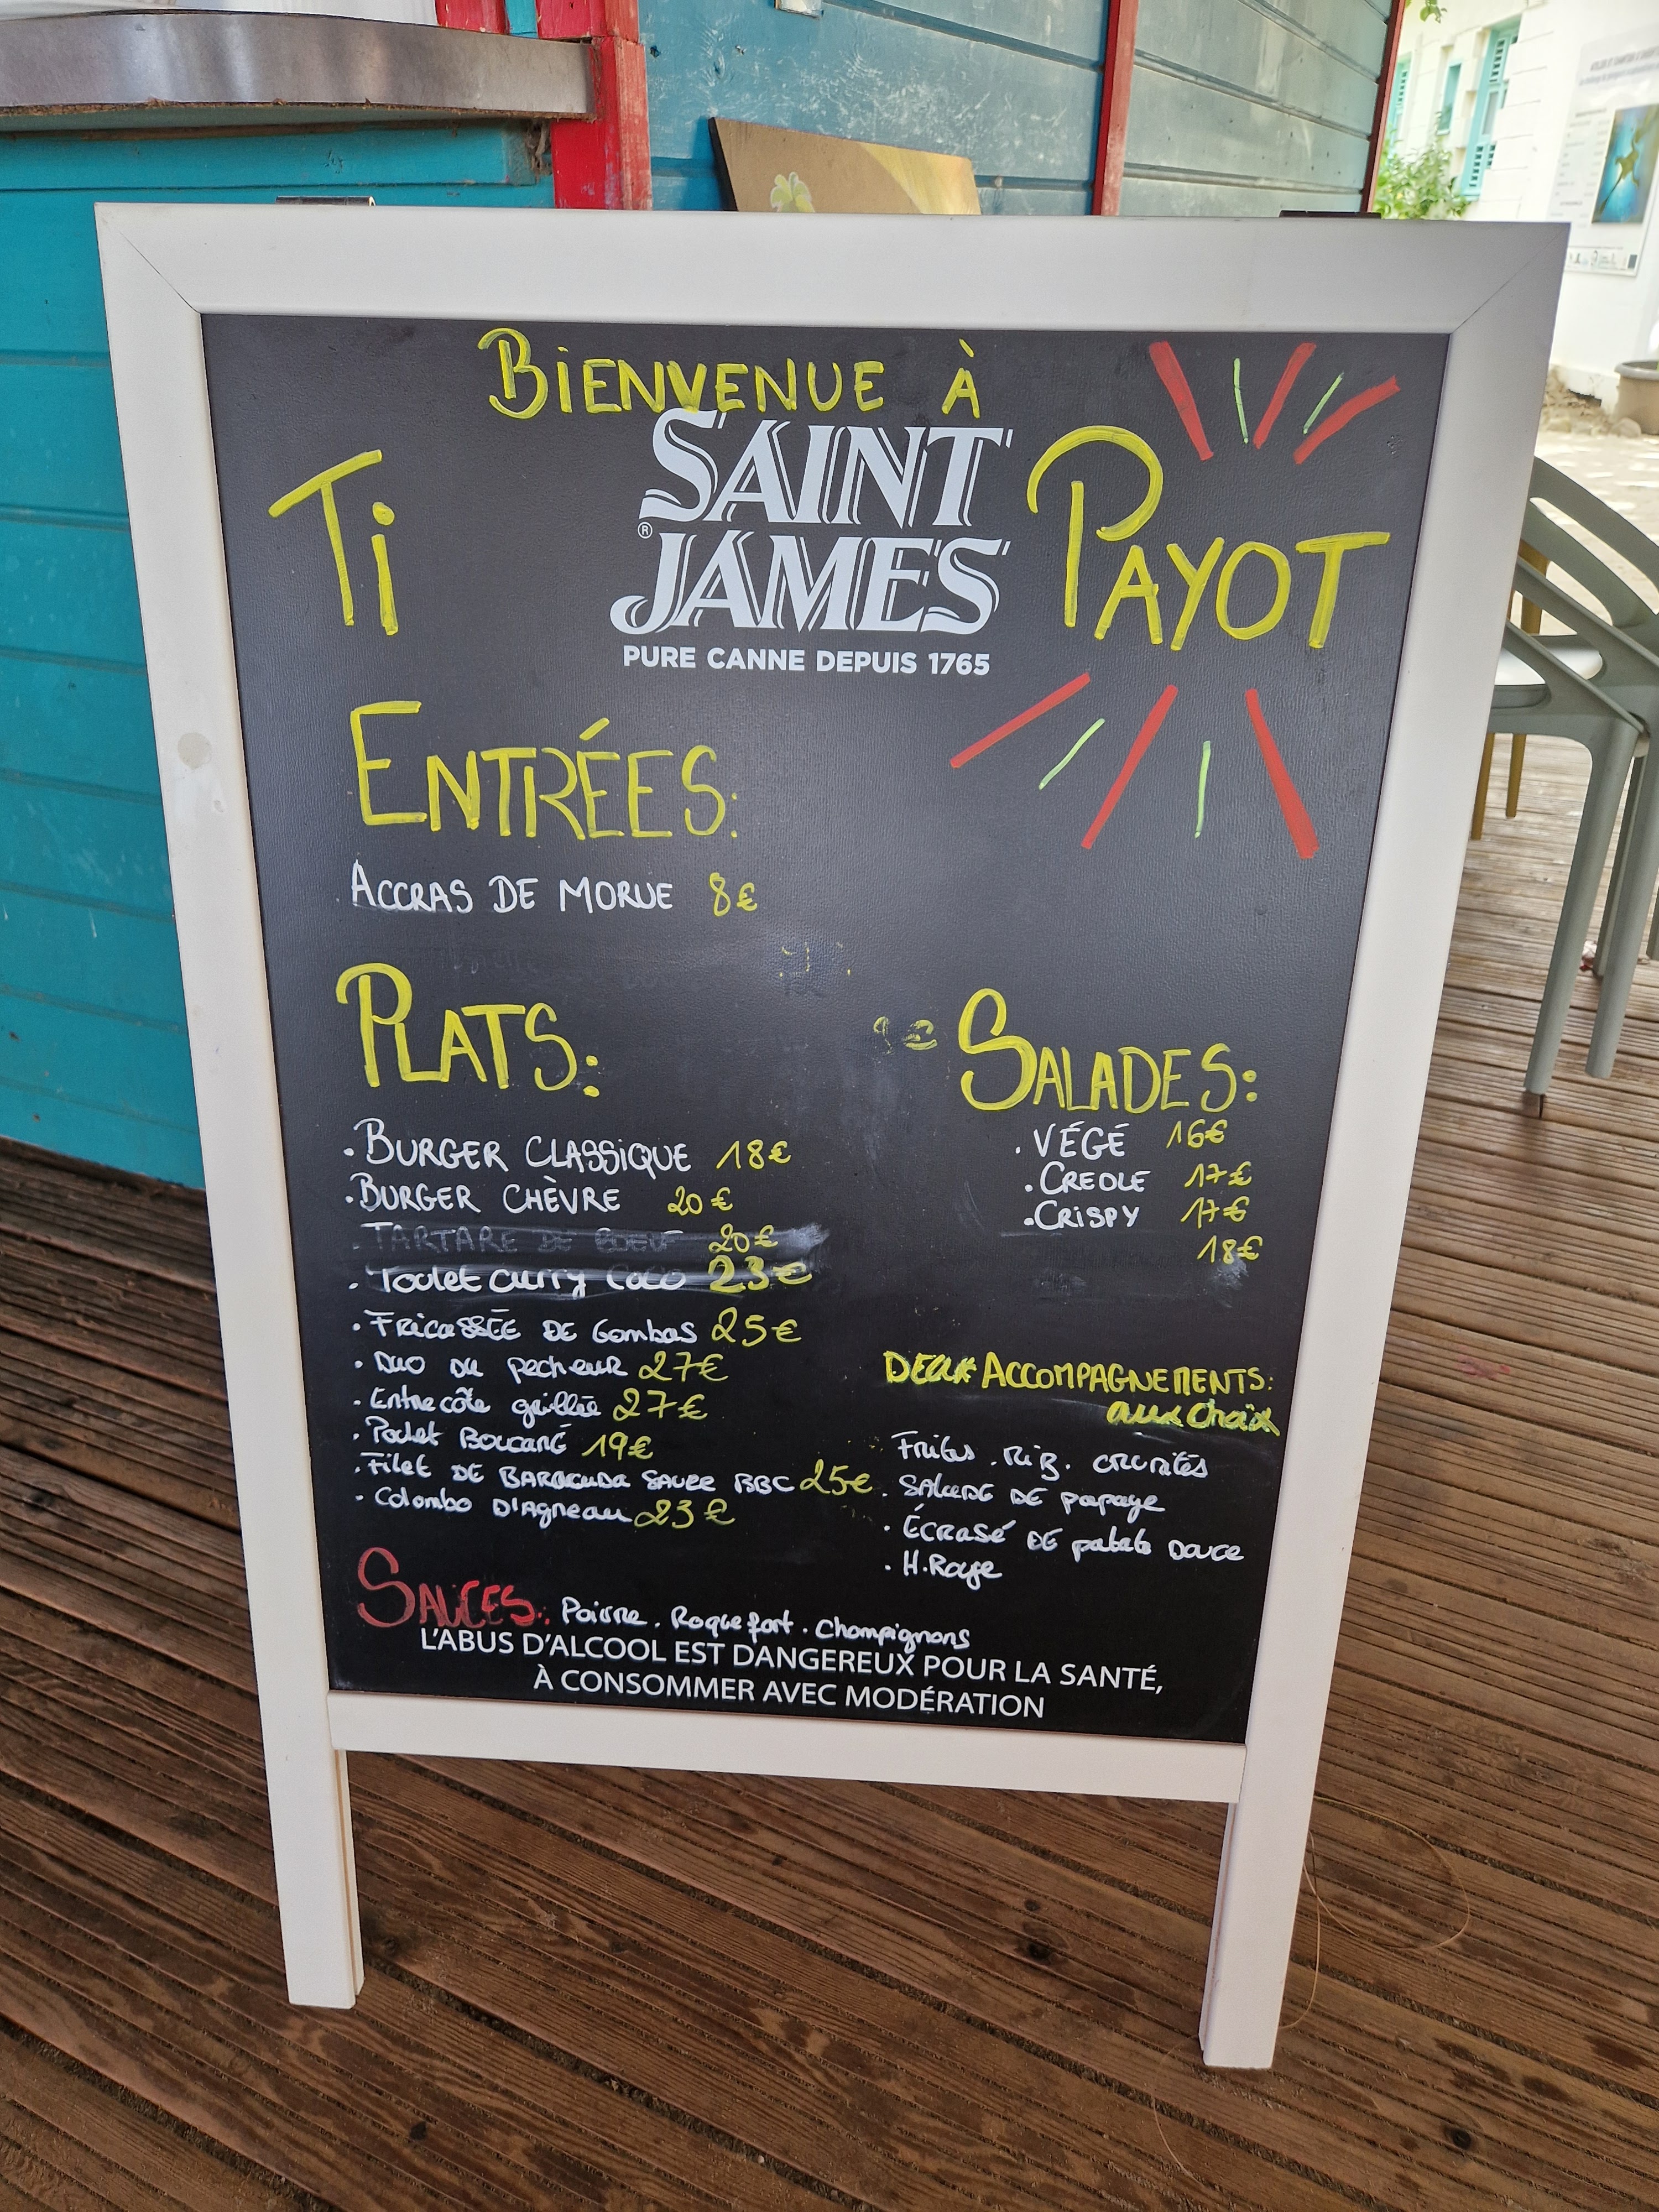 BIENVENUE À
SAINT
JAMES
®
PURE CANNE DEPUIS 1765
Ti PAYOT
ENTRÉES:
ACCRAS DE MORUE 8€
PLATS:
. BURGER CLASSIQUE 18€
. BURGER CHÈVRE 20€
. TARTARE DE BOEUF 20€
. Poulet curry Coco 23€
. FRICASSÉE DE Gombas 25€
. DUO DU pecheur 27€
. Entrecôte grillée 27€
. Poulet Boucané 19€
. FILET DE BARACUDA SAUCE BBC 25€
. Colombo D'Agneau 23€
SALADES:
. VÉGÉ 16€
. CREOLE 17€
. CRISPY 17€
18€
DEUX ACCOMPAGNEMENTS:
aux choix
Frites . Riz . crudités
. SALADE DE papaye
. ÉCRASÉ DE patate DOUCE
. H.Rouge
SAUCES: Poivre . Roquefort . Champignons
L'ABUS D'ALCOOL EST DANGEREUX POUR LA SANTÉ,
À CONSOMMER AVEC MODÉRATION